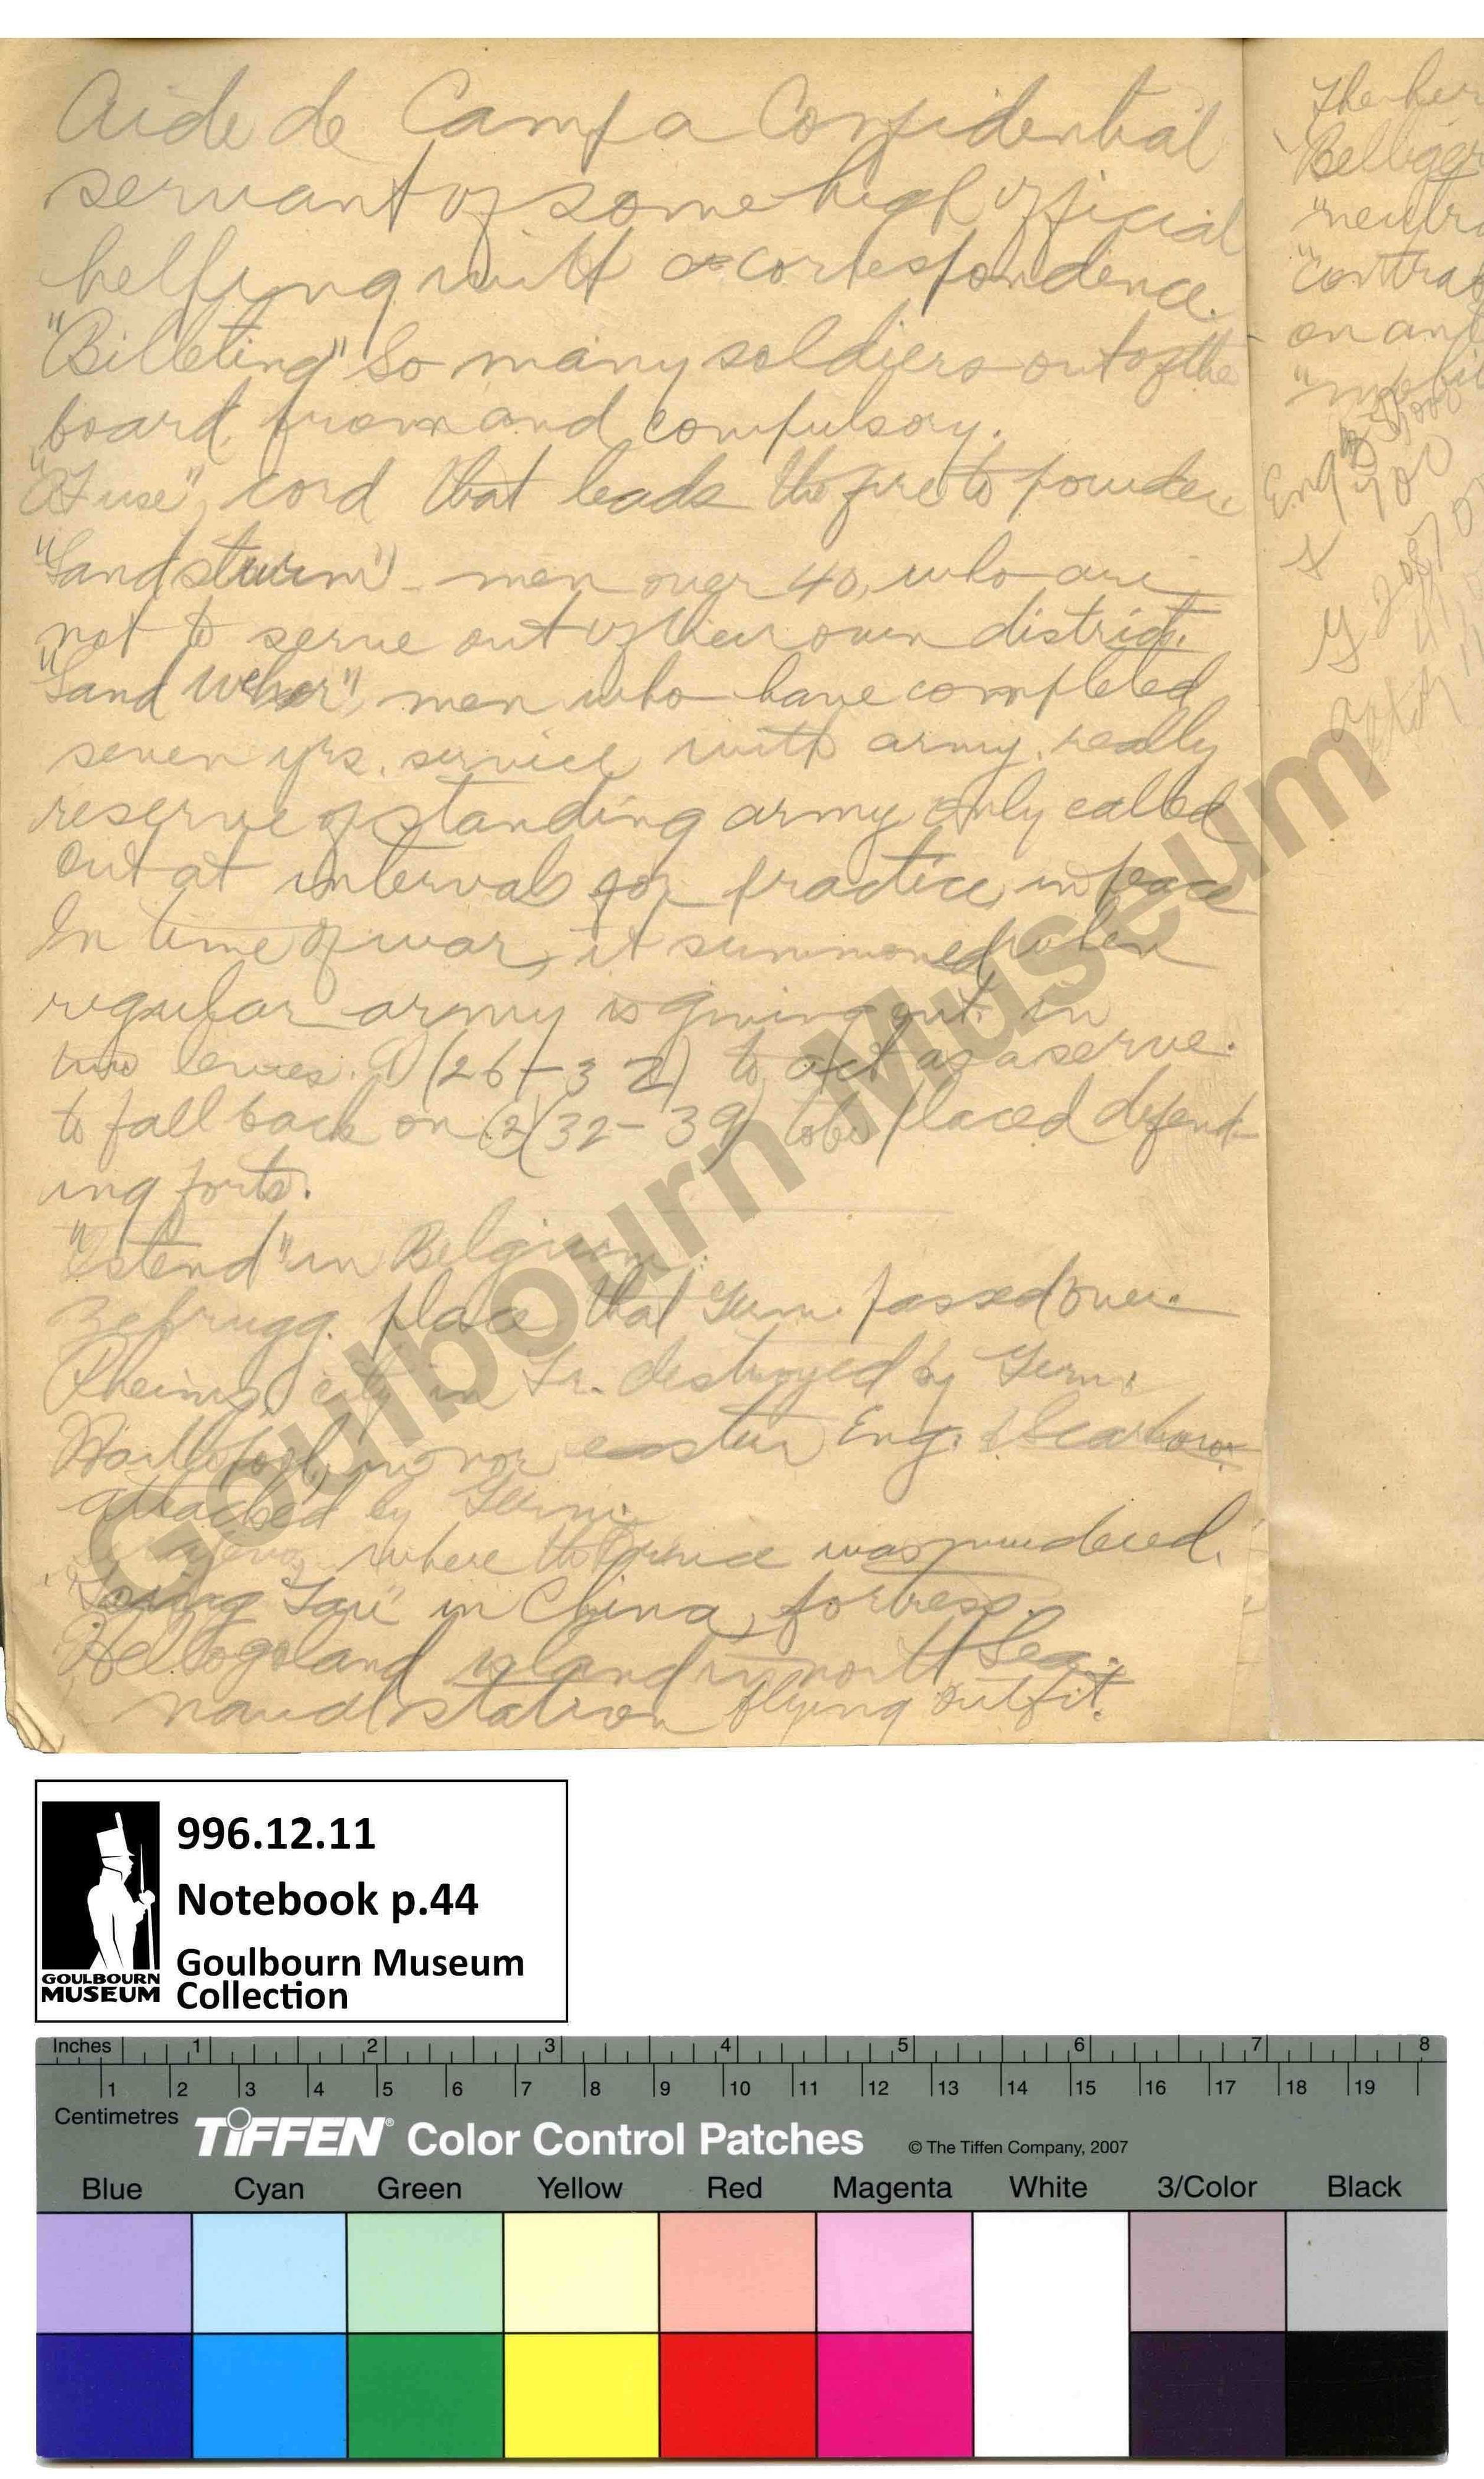 Aide de Camp a Confidential
servant of some high official
helping with correspondence.
"Billeting" So many soldiers out of the
board, from and compulsory.
"A Fuse", cord that leads the fire to powder.
"Landsturm" - men over 40, who are
not to serve out of their own district.
"Land Wehr", men who have completed
seven yrs. service with army, really
reserve of standing army only called
out at intervals for practice, in peace
In time of war, it summoned when
regular army is giving out in
two levies. (1) (26-32) to act as a serve.
to fall back on (2) (32-39) to be placed defend-
ing forts.
"Ostend" in Belgium.
Zebrugg. place that Germ. passed over.
Rheims, city in Fr. destroyed by Germ.
in nor eastern Eng. & Scarboro
attacked by Germ.
where the Prince was murdered.
"Tsing Tau" in China, fortress.
Heltogoland island in north Sea.
naval station flying outfit.
The
Bellige
"neutra
"contrab
on an
Eng
700
Goulbourn Museum
996.12.11
Notebook p.44
Goulbourn Museum
Collection
GOULBOURN
MUSEUM
Inches 1 2 3 4 5 6 7 8
1 2 3 4 5 6 7 8 9 10 11 12 13 14 15 16 17 18 19
Centimetres
TIFFEN® Color Control Patches © The Tiffen Company, 2007
Blue Cyan Green Yellow Red Magenta White 3/Color Black